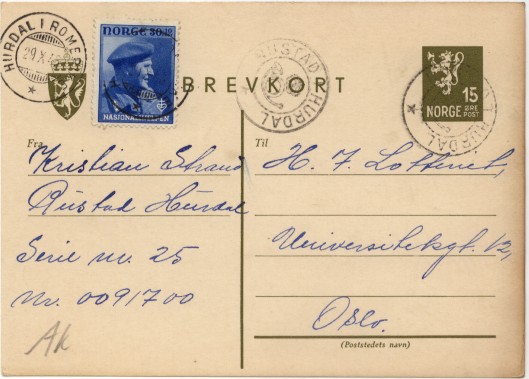 HURDAL I ROMER
29 X
NORGE
NASJONALHJELPEN
BREVKORT
RUSTAD I HURDAL
15
NORGE ØRE
POST
HURDAL
Fra
Kristian Strand
Rustad Hurdal
Serie nr. 25
Nr. 0091700
Ak
Til
H. F.
Universitetsgt. 12,
Oslo.
(Poststedets navn)